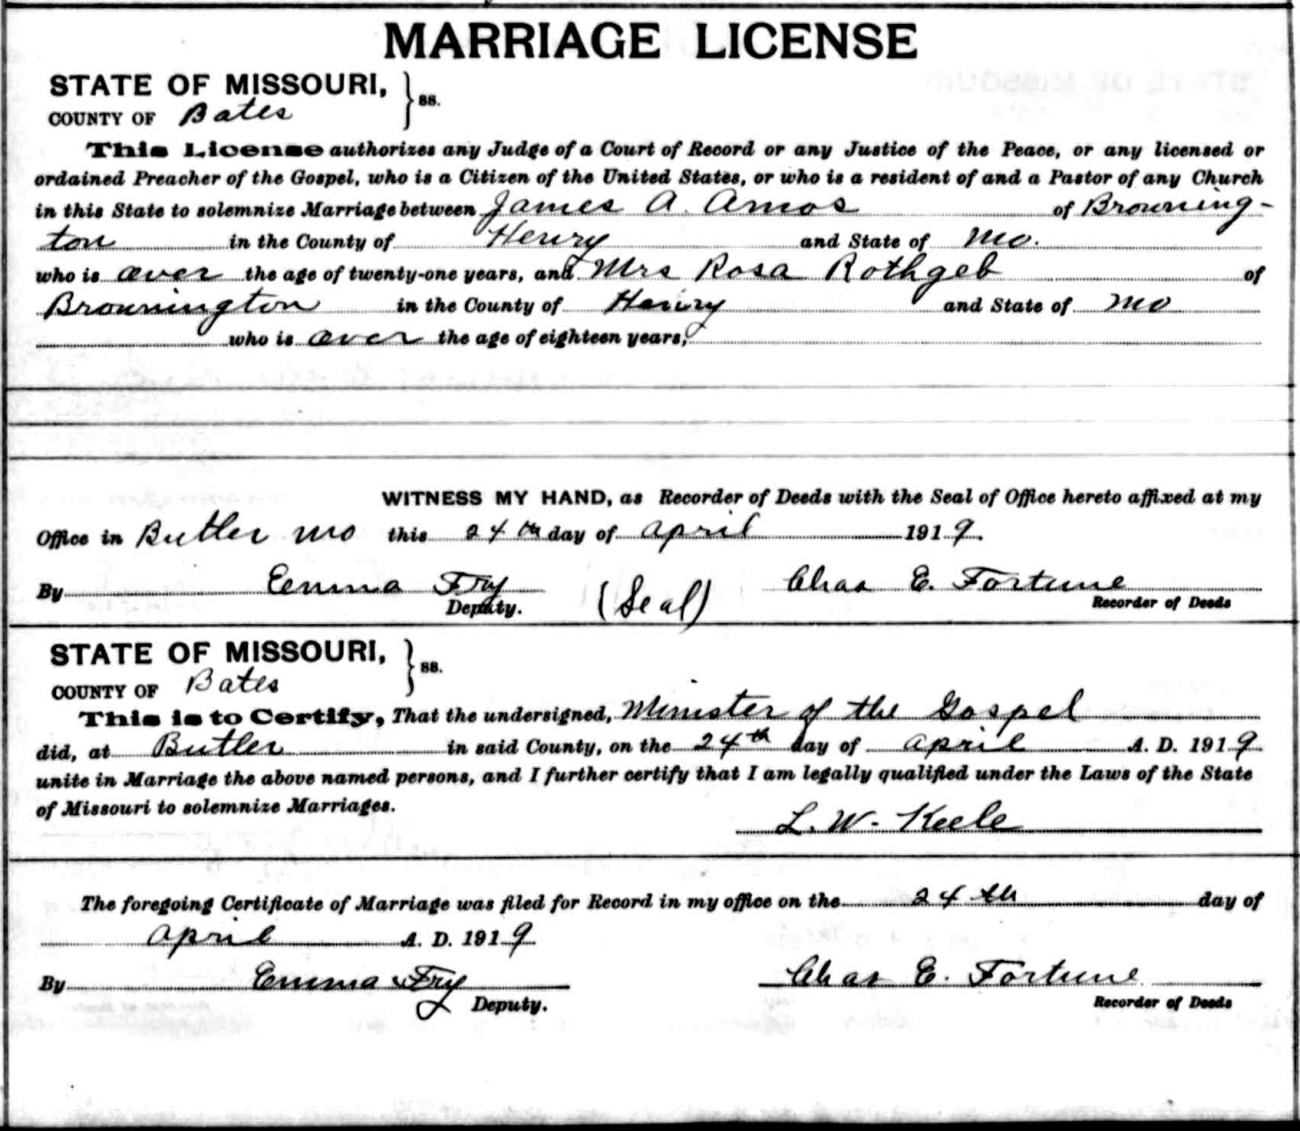 MARRIAGE LICENSE
STATE OF MISSOURI, } ss.
COUNTY OF Bates
This License authorizes any Judge of a Court of Record or any Justice of the Peace, or any licensed or
ordained Preacher of the Gospel, who is a Citizen of the United States, or who is a resident of and a Pastor of any Church
in this State to solemnize Marriage between James A. Amos of Browning-
ton in the County of Henry and State of Mo.
who is over the age of twenty-one years, and Mrs Rosa Rothgeb of
Brownington in the County of Henry and State of Mo
who is over the age of eighteen years,
WITNESS MY HAND, as Recorder of Deeds with the Seal of Office hereto affixed at my
Office in Butler Mo this 24th day of April 1919.
By Emma Fry (Seal) Chas E. Fortune
Deputy. Recorder of Deeds
STATE OF MISSOURI, } ss.
COUNTY OF Bates
This is to Certify, That the undersigned, Minister of the Gospel
did, at Butler in said County, on the 24th day of April A. D. 1919
unite in Marriage the above named persons, and I further certify that I am legally qualified under the Laws of the State
of Missouri to solemnize Marriages.
L. W. Keele
The foregoing Certificate of Marriage was filed for Record in my office on the 24th day of
April A. D. 1919
By Emma Fry Chas E. Fortune
Deputy. Recorder of Deeds